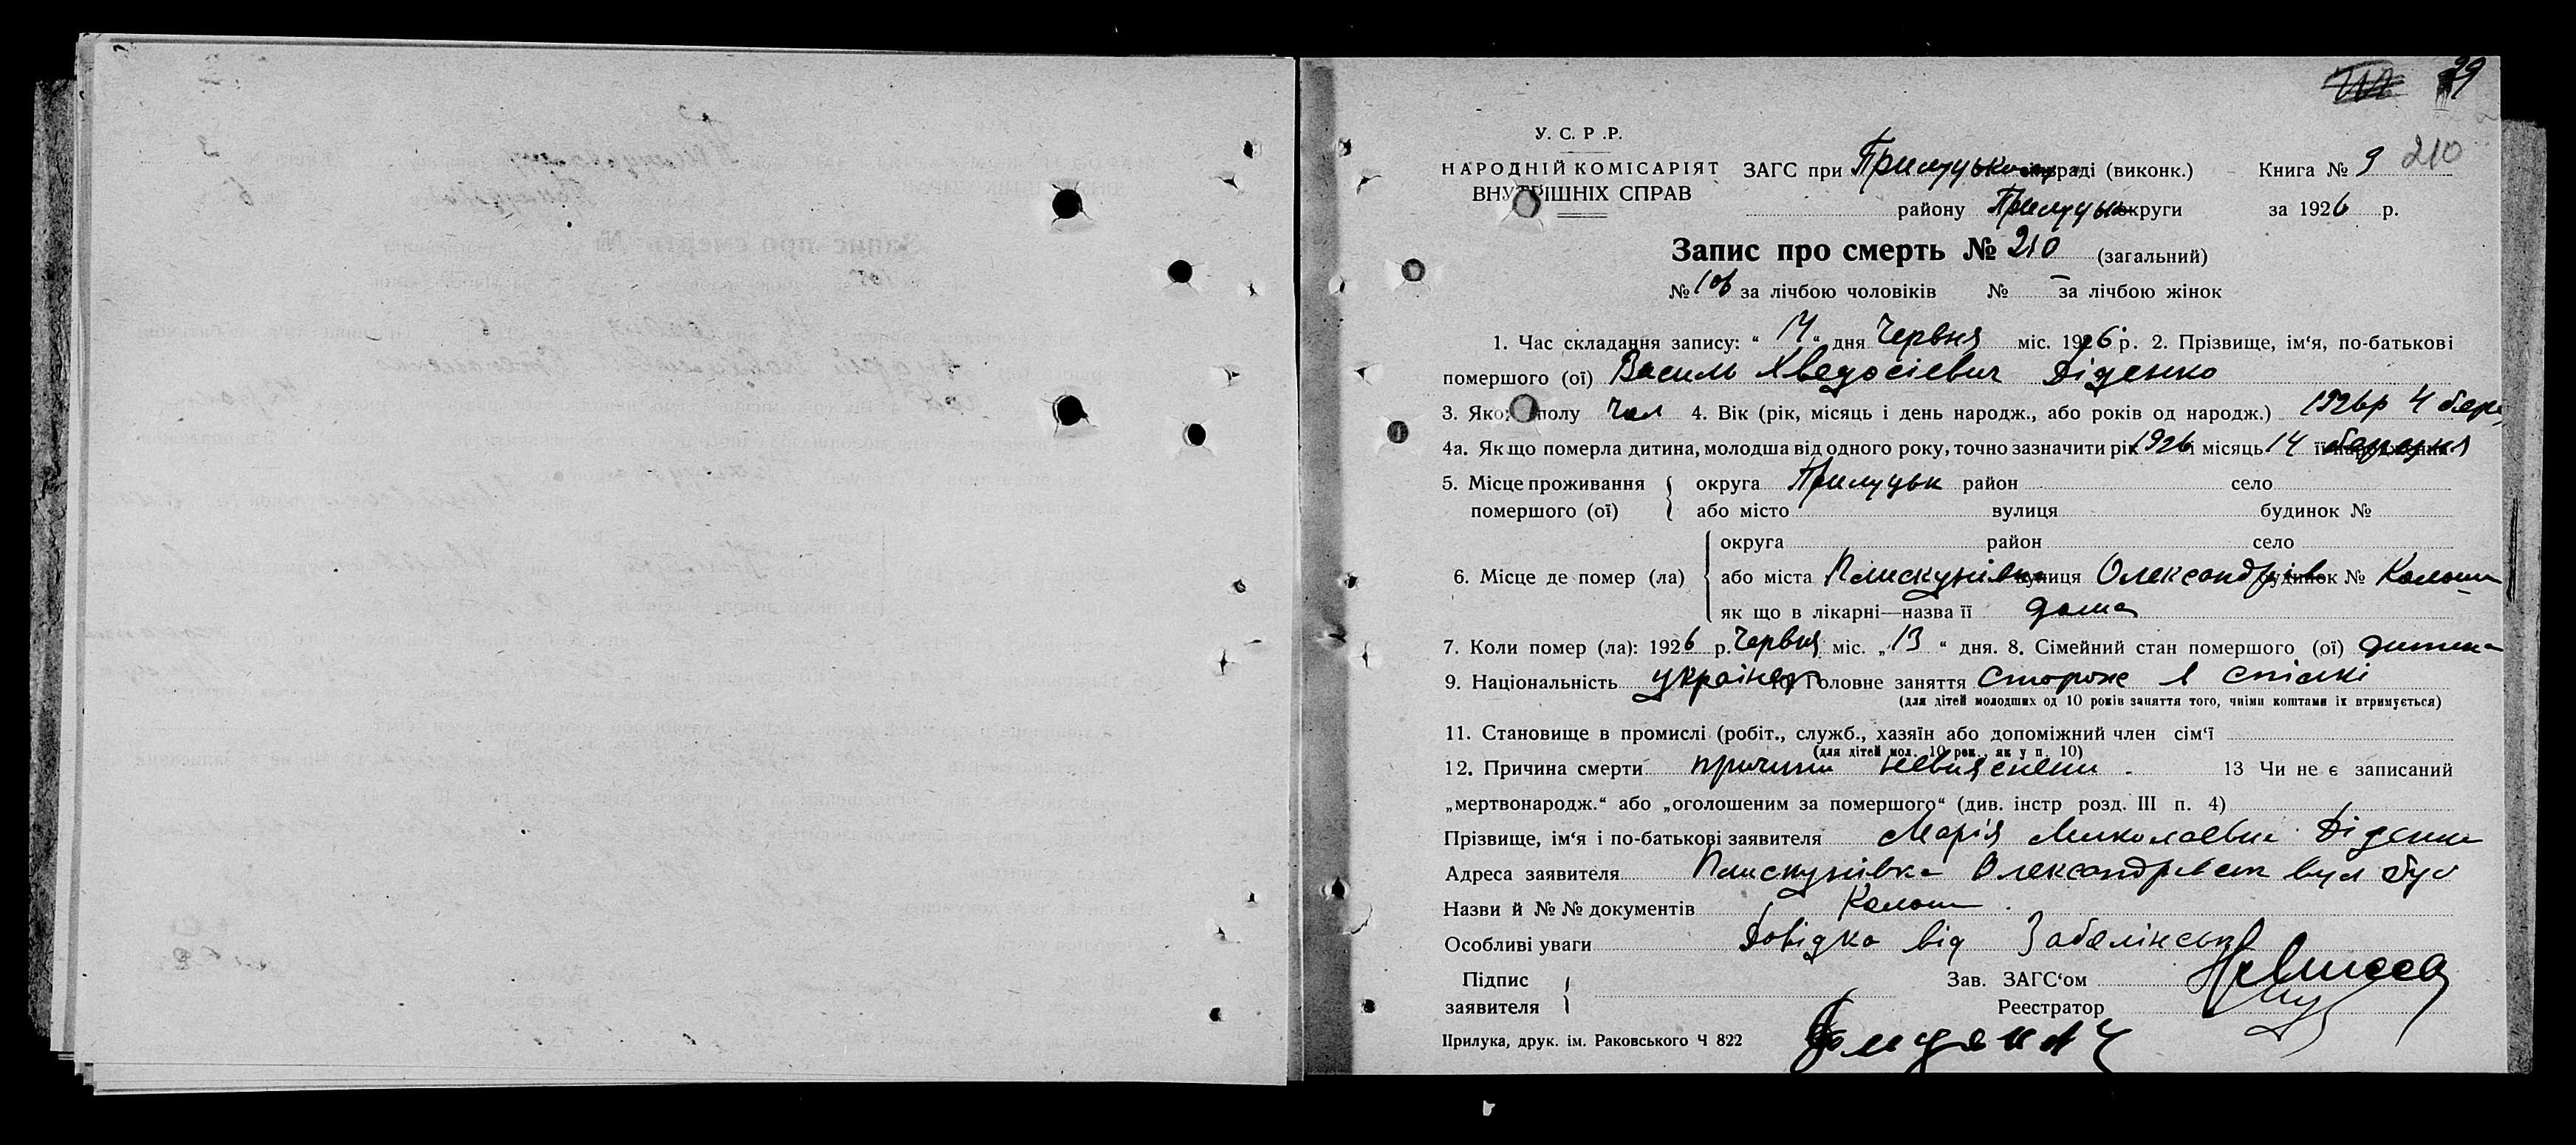 29
У. С. Р .Р.
НАРОДНІЙ КОМІСАРІЯТ ЗАГС при Прилуцькому раді (виконк.) Книга № 9 210
ВНУТРІШНІХ СПРАВ району Прилуцьк округи за 1926 р.
Запис про смерть № 210 (загальний)
№ 108 за лічбою чоловіків № — за лічбою жінок
1. Час складання запису: “ 14 “ дня Червня міс. 1926 р. 2. Прізвище, ім‘я, по-батькові
помершого (ої) Василь Хведосієвич Діденко
3. Якого полу Чол 4. Вік (рік, місяць і день народж., або років од народж.) 1926р 4 бере
4а. Якщо померла дитина, молодша від одного року, точно зазначити рік 1926 і місяць 14 її березня
5. Місце проживання округа Прилуцьк район село
помершого (ої) або місто вулиця будинок №
округа район село
6. Місце де помер (ла) або міста Плискунівка вулиця Олександрівс будинок №
як що в лікарні—назва її дома
7. Коли помер (ла): 1926 р. Червня міс. „ 13 “ дня. 8. Сімейний стан помершого (ої) дитина
9. Національність українец 10. Головне заняття Сторож в спілкі
(для дітей молодших од 10 років заняття того, чиїми коштами їх втримується)
11. Становище в промислі (робіт., служб., хазяїн або допоміжний член сім‘ї
(для дітей мол. 10 рок., як у п. 10)
12. Причина смерти причини невияснени . 13 Чи не є записаний
„мертвонародж.“ або „оголошеним за помершого“ (див. інстр розд. III п. 4)
Прізвище, ім‘я і по-батькові заявителя Марія Миколаевна Діденко
Адреса заявителя Плискунівка Олександрівськ вул буд
Назви й № № документів
Особливі уваги Довідка від
Підпис Зав. ЗАГС‘ом
заявителя Реестратор
Прилука, друк. ім. Раковського Ч 822